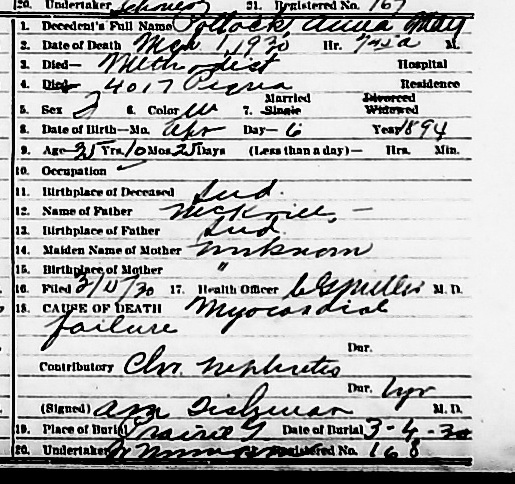 20. Undertaker 21. Registered No. 167
1. Decedent's Full Name Pollock, Anna May
2. Date of Death Mch 1, 1930 Hr. 745a M.
3. Died— Methodist Hospital
4. Died— 4017 Residence
5. Sex F 6. Color W 7. Married Single Divorced Widowed
8. Date of Birth—Mo. Apr Day— 6 Year 1894
9. Age 35 Yrs. 10 Mos. 25 Days (Less than a day)— Hrs. Min.
10. Occupation
11. Birthplace of Deceased Ind.
12. Name of Father —
13. Birthplace of Father Ind.
14. Maiden Name of Mother unknown
15. Birthplace of Mother "
16. Filed 3/11/30 17. Health Officer M. D.
18. CAUSE OF DEATH Myocardial
failure
Dur.
Contributory Chr. nephritis
Dur. 1yr
(Signed) M. D.
19. Place of Burial Date of Burial 3-4-30
20. Undertaker Registered No. 168